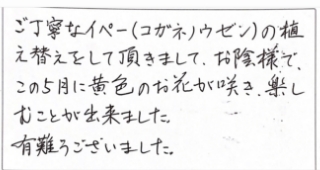 ご丁寧なイペー(コガネノウゼン)の植
え替えをして頂きまして、お陰様で、
この5月に黄色のお花が咲き、楽し
むことが出来ました。
有難うございました。